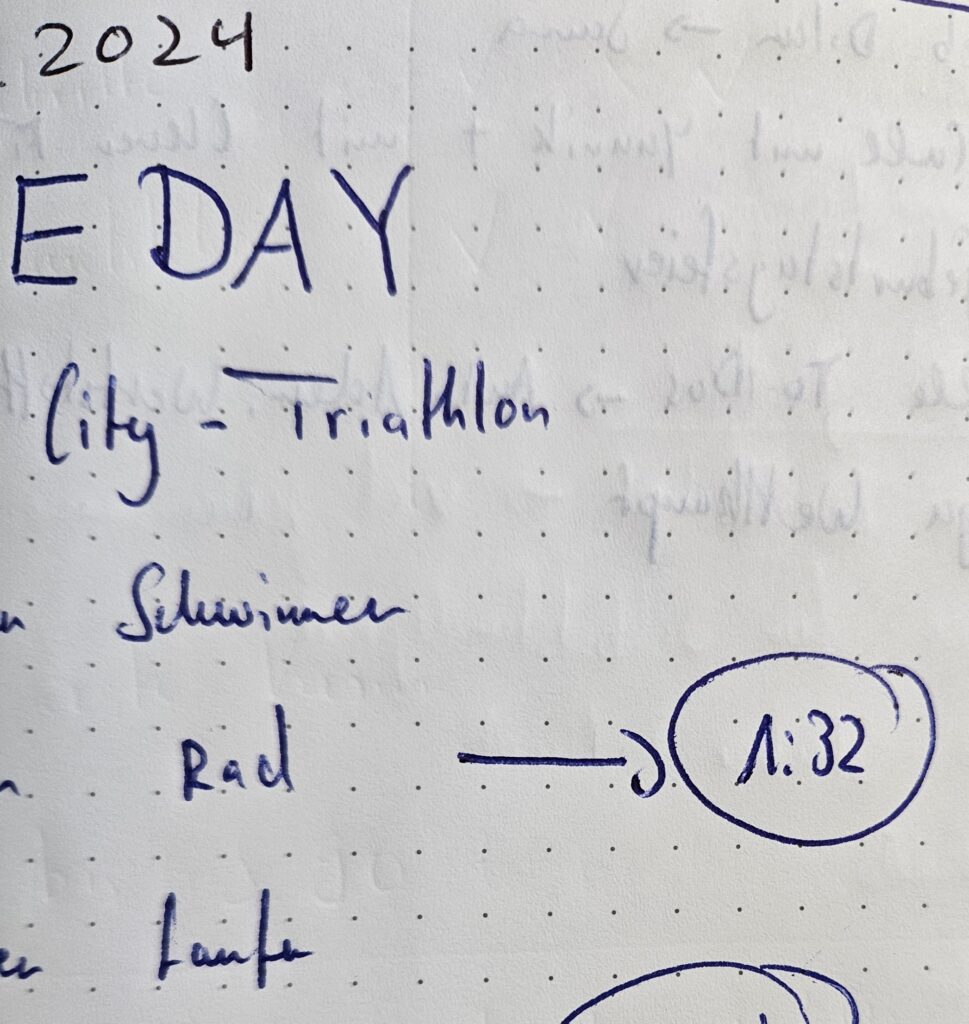 2024
E DAY
City - Triathlon
Schwimmen
Rad → 1:32
Laufen